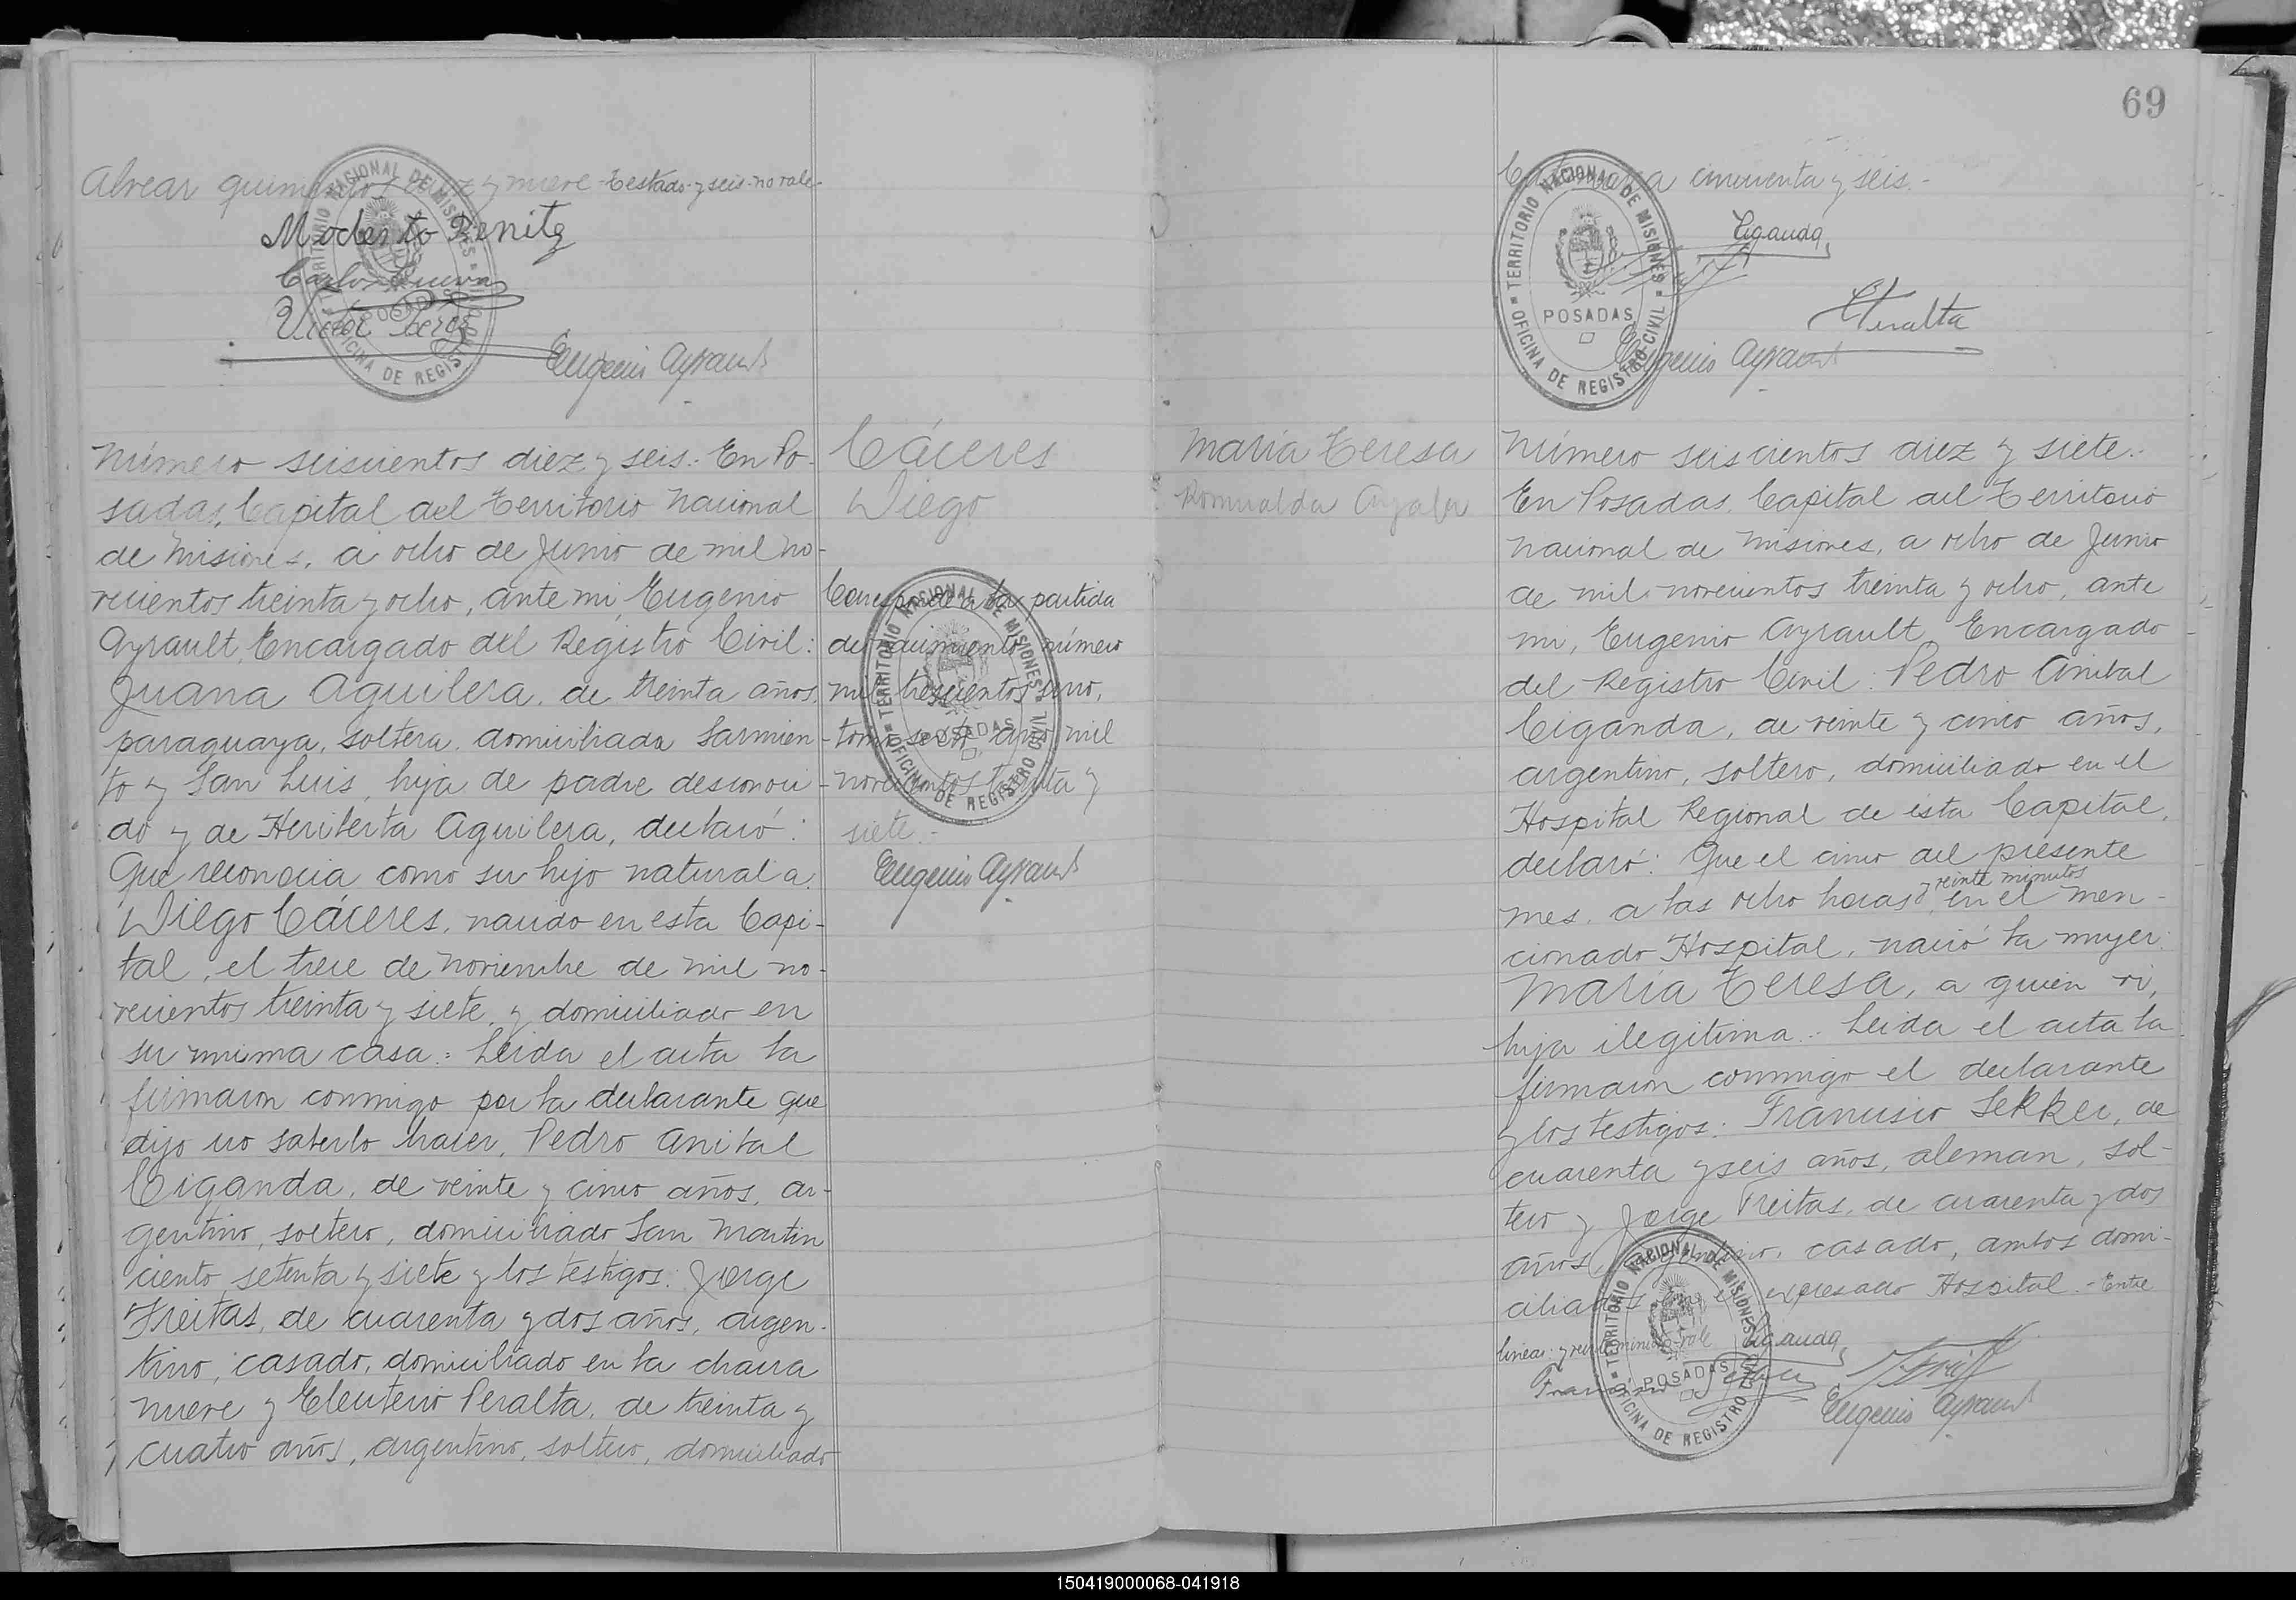 Alvear quinientos diez y nueve - Testado - y seis - no vale -
Modesto Benitz
Carlos Cueva
Eugenio Ayrault
Número seiscientos diez y seis: En Po-
sadas, Capital del Territorio Nacional
de Misiones, a ocho de Junio de mil no-
vecientos treinta y ocho, ante mi, Eugenio
Ayrault, Encargado del Registro Civil:
Juana Aguilera, de treinta años,
paraguaya, soltera, domiciliada Sarmien-
to y San Luis, hija de padre desconoci-
do y de Heriberta Aguilera, declaró:
Que reconocia como su hijo natural a:
Diego Cáceres, nacido en esta Capi-
tal, el trece de Noviembre de mil no-
vecientos treinta y siete, y domiciliado en
su misma casa.- Leida el acta la
firmaron conmigo por la declarante que
dijo no saberlo hacer, Pedro Anibal
Ciganda, de veinte y cinco años, ar-
gentino, soltero, domiciliado San Martin
ciento setenta y siete y los testigos: Jorge
Freitas, de cuarenta y dos años, argen-
tino, casado, domiciliado en la chacra
nueve y Eleuterio Peralta, de treinta y
cuatro años, argentino, soltero, domiciliado
Cáceres
Diego
Corresponde a la partida
de nacimiento número
mil trescientos uno,
tomo año mil
novecientos treinta y
siete.-
Eugenio Ayrault
TERRITORIO NACIONAL DE MISIONES
POSADAS
OFICINA DE REGISTRO CIVIL
69
cincuenta y seis.-
Ciganda
EPeralta
Eugenio Ayrault
TERRITORIO NACIONAL DE MISIONES
POSADAS
OFICINA DE REGISTRO CIVIL
María Teresa
Romualda Ayala
Número seiscientos diez y siete.-
En Posadas, Capital del Territorio
Nacional de Misiones, a ocho de Junio
de mil novecientos treinta y ocho, ante
mi, Eugenio Ayrault, Encargado
del Registro Civil: Pedro Anibal
Ciganda, de veinte y cinco años,
argentino, soltero, domiciliado en el
Hospital Regional de ésta Capital,
declaró: Que el cinco del presente
y veinte minutos
mes, a las ocho horas, en el men-
cionado Hospital, nació la mujer:
María Teresa, a quien vi,
hija ilegitima.- Leida el acta la
firmaron conmigo el declarante
y los testigos: Francisco Sekker, de
cuarenta y seis años, aleman, sol-
tero y Jorge Freitas, de cuarenta y dos
años, argentino, casado, ambos domi-
ciliados en el expresado Hospital.- Entre
lineas: y veinte minutos - vale
Ciganda
Eugenio Ayrault
TERRITORIO NACIONAL DE MISIONES
POSADAS
OFICINA DE REGISTRO CIVIL
150419000068-041918